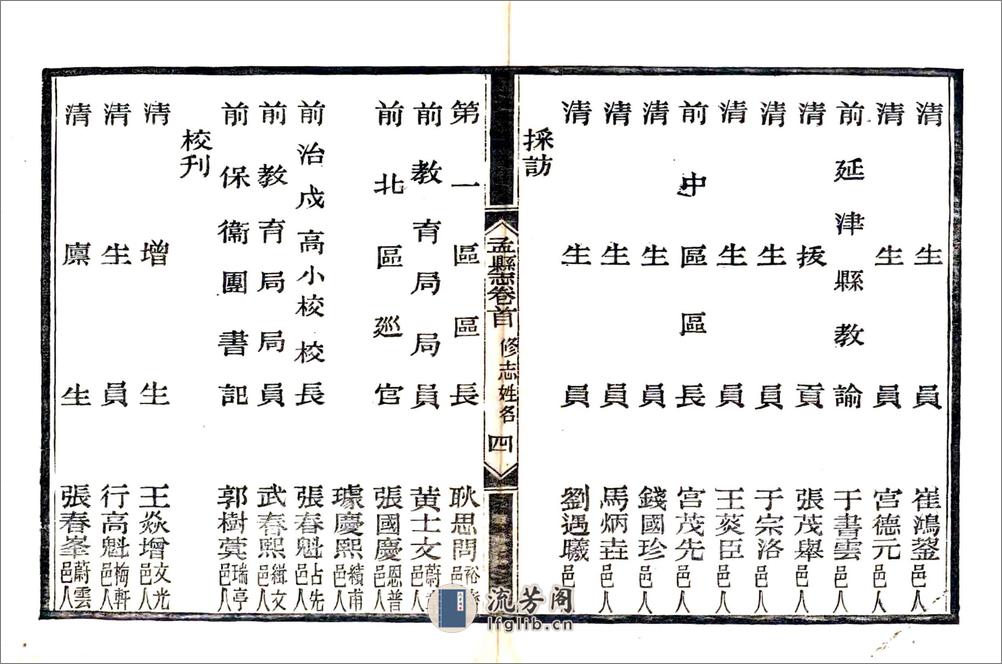 清生員 崔鴻鋆 邑人
清生員 宮德元 邑人
前延津縣教諭 于書雲 邑人
清拔貢 張茂舉 邑人
清生員 于宗洛 邑人
清生員 王燮臣 邑人
前中區區長 宮茂先 邑人
清生員 錢國珍 邑人
清生員 馬炳垚 邑人
清生員 劉遇曦 邑人
採訪
孟縣志卷首 修志姓名 四
第一區區長 耿思問 邑人
前教育局局員 黃士文 邑人
前北區巡官 張國慶 恩普 邑人
璩慶熙 績甫 邑人
前治戍高小校校長 張春魁 占先 邑人
前教育局局員 武春熙 緝文 邑人
前保衛團書記 郭樹蓂 瑞亭 邑人
校刊
清增生 王焱增 文光 邑人
清生員 行高魁 梅軒 邑人
清廩生 張春峯 蔚雲 邑人
流芳阁
lfglib.cn